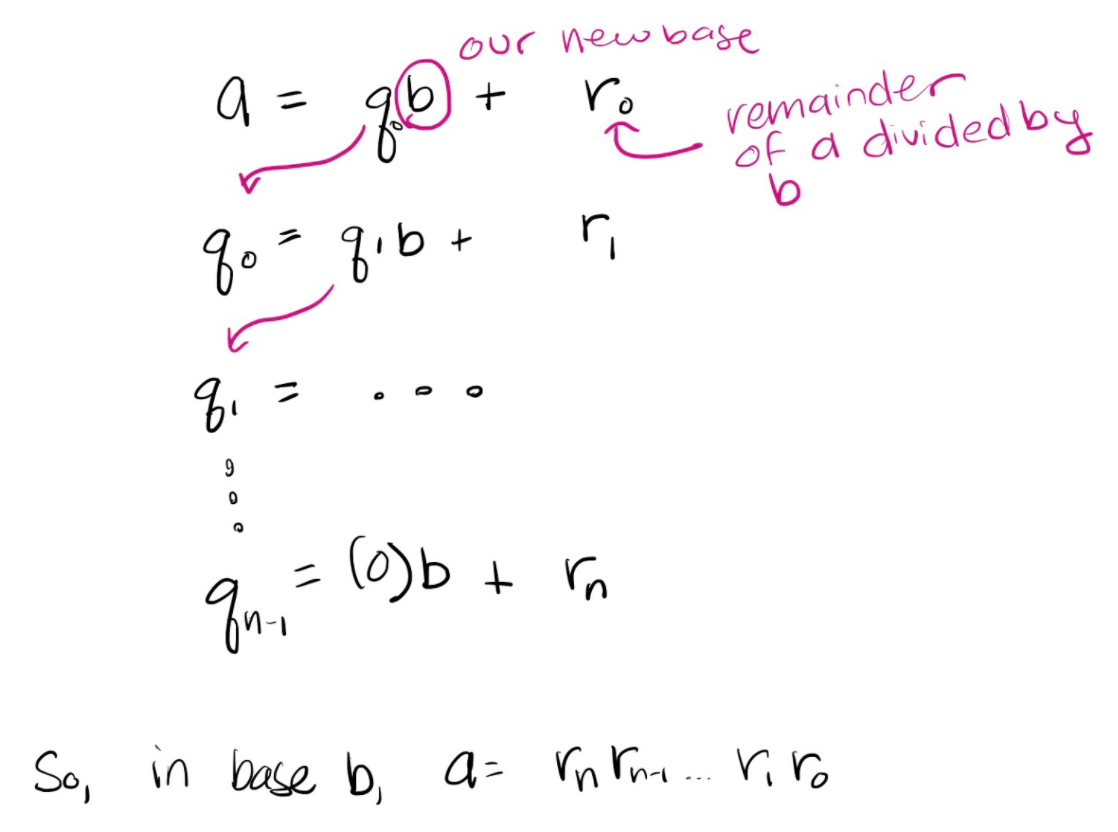 our new base
a = q₀b + r₀
remainder
of a divided by
b
q₀ = q₁b + r₁
q₁ = ...
⋮
qₙ₋₁ = (0)b + rₙ
So, in base b, a = rₙrₙ₋₁...r₁r₀